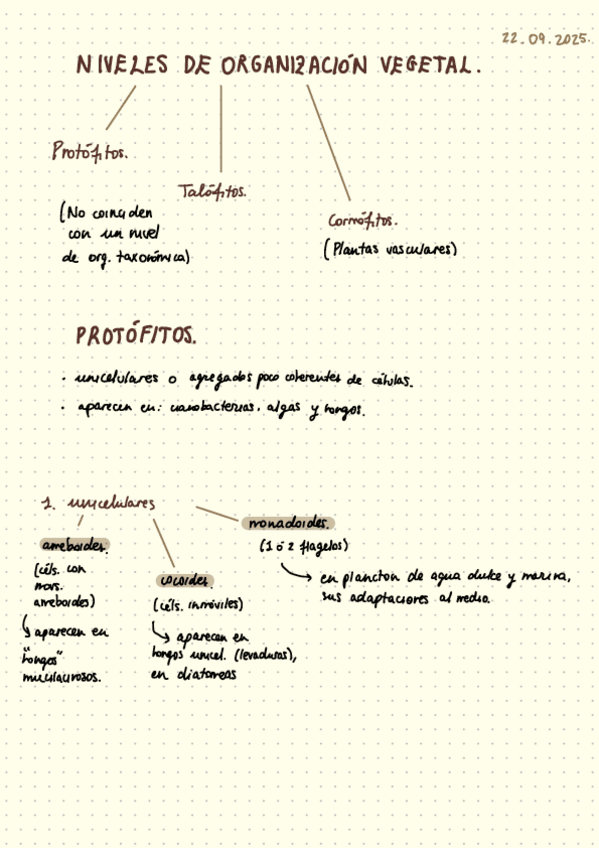 22.09.2025.
NIVELES DE ORGANIZACIÓN VEGETAL.
Protófitos.
Talófitos.
Cormófitos.
(No coinciden
con un nivel
de org. taxonómica)
(Plantas vasculares)
PROTÓFITOS.
· unicelulares o agregados poco coherentes de células.
· aparecen en: cianobacterias, algas y hongos.
1. unicelulares
monadoides.
(1 ó 2 flagelos)
↳ en plancton de agua dulce y marina,
sus adaptaciones al medio.
ameboides.
(céls. con
movs.
ameboides)
↳ aparecen en
"hongos"
mucilaginosos.
cocoides.
(céls. inmóviles)
↳ aparecen en
hongos unicel. (levaduras),
en diatomeas